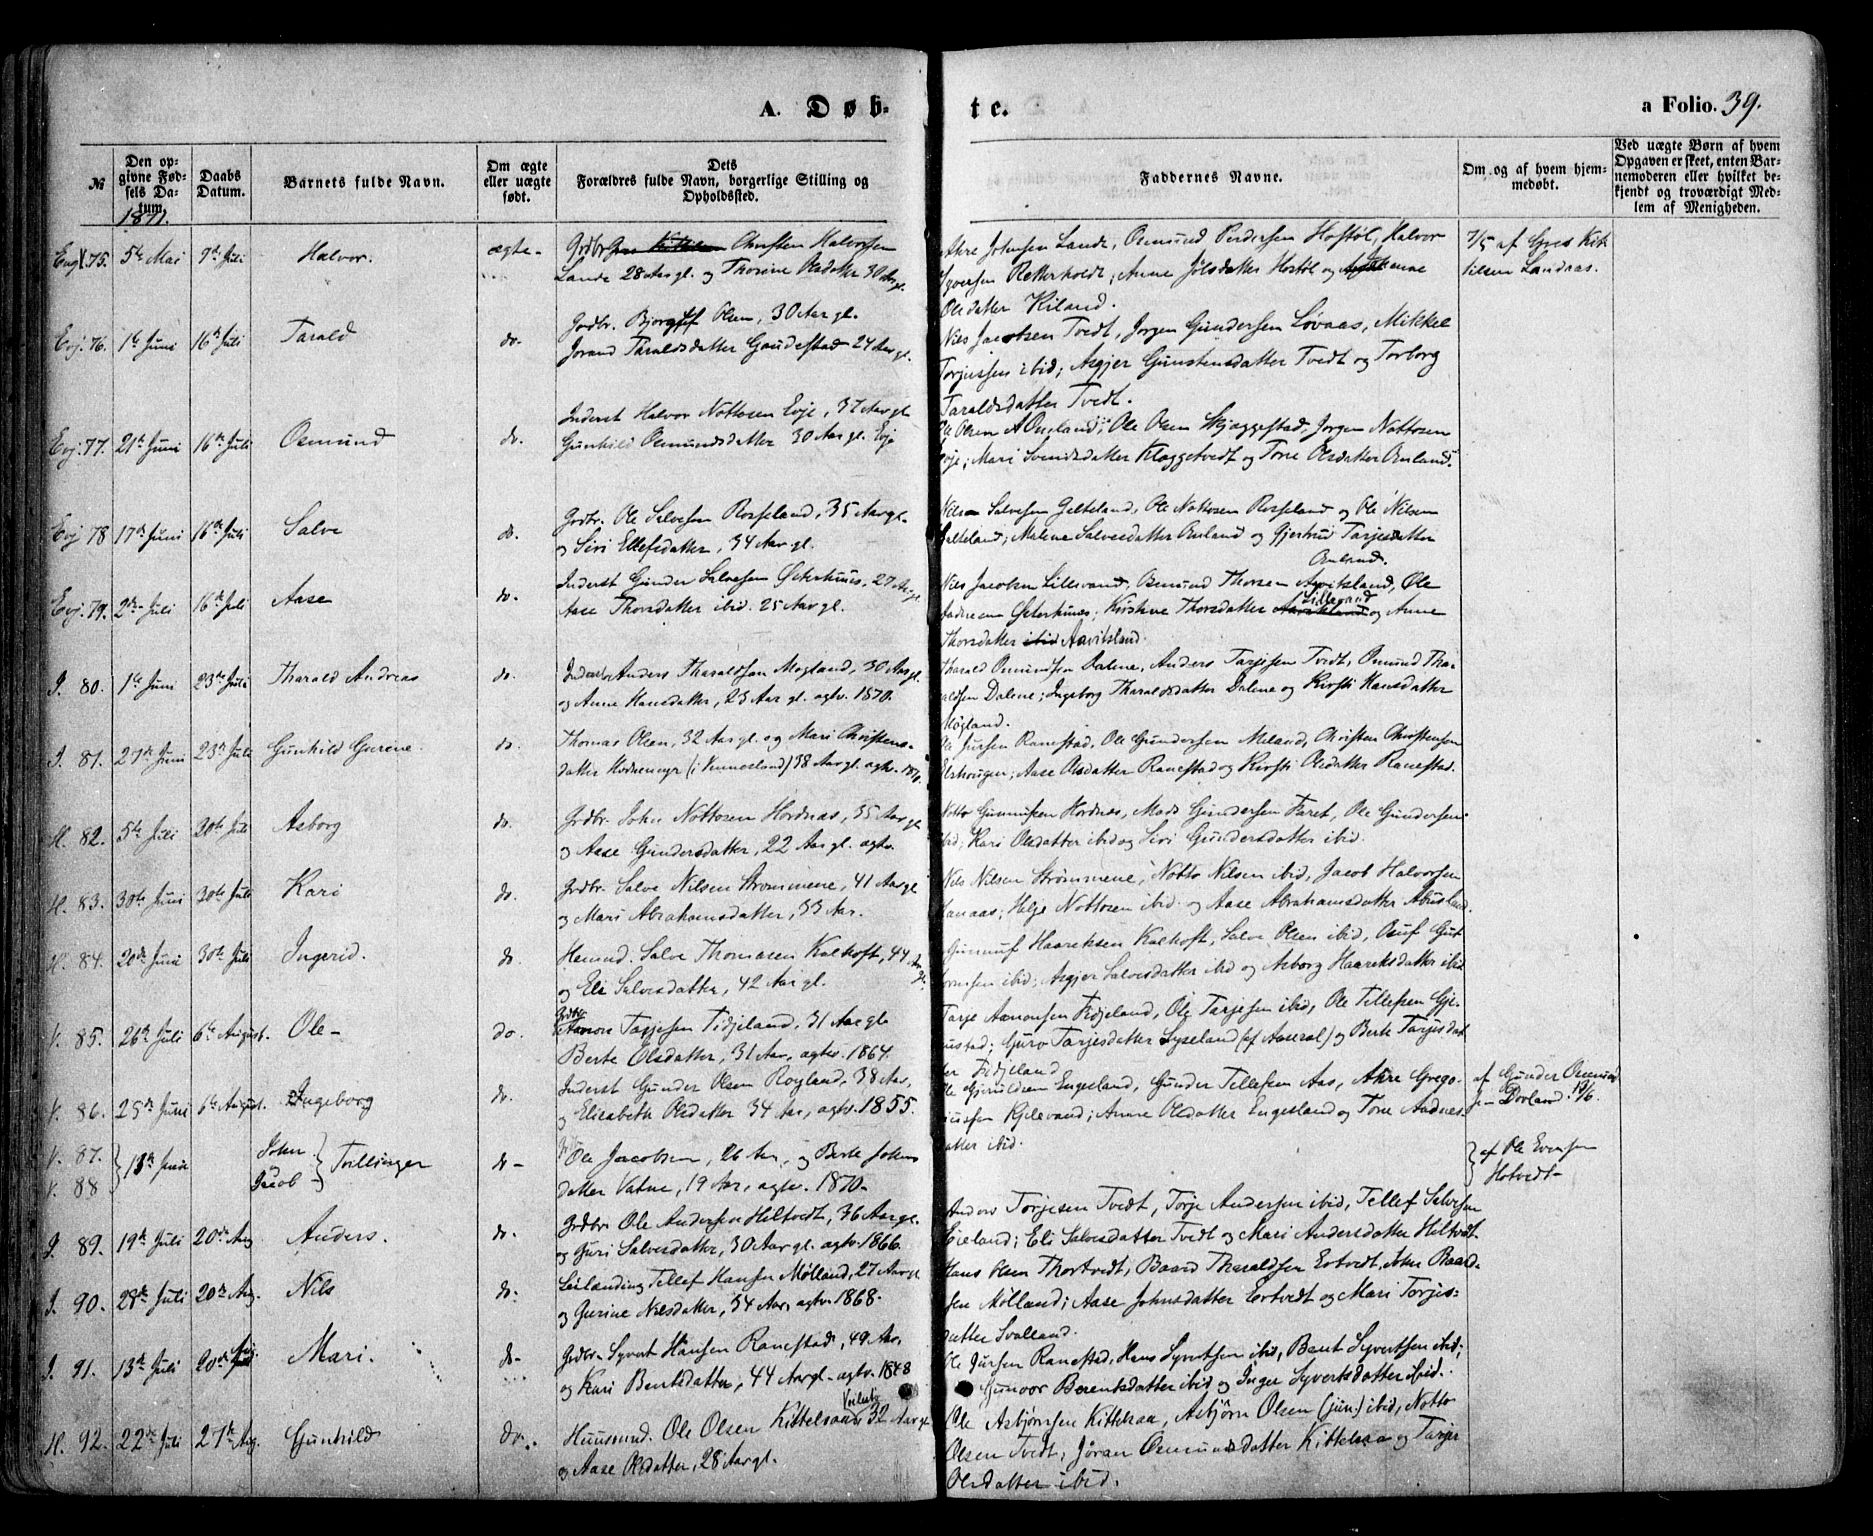 A. Døb-
te.
a Folio. 39.
№
Den opgivne Fødsels Datum.
Daabs Datum.
Barnets fulde Navn.
Om ægte eller uægte født.
Dets Forældres fulde Navn, borgerlige Stilling og Opholdssted.
Faddernes Navne.
Om og af hvem hjemmedøbt.
Ved uægte Børn af hvem Opgaven er skeet, enten Barnemoderen eller hvilket bekjendt og troværdigt Medlem af Menigheden.
1871.
75. 5te Mai 9de Juli Halvor. ægte-
Grdbr Christen Halvorsen
Lande 28 Aar gl. og Thorine Olsdatter 30 Aar gl.
Johnsen Lande, Osmund Pedersen Hostöl, Halvor
Retterholdt; Anne Jölsdatter Hostöl og
Olsdatter Kiland.
7/5 af Gres Kit
tilsen Landaas.
Evj. 76. 1te Juni 16de Juli Tarald do.
Grdbr. Olsen, 30 Aar gl.
Jorand Taraldsdatter Gaudestad 24 Aar gl.
Nils Jacobsen Tvedt, Jorgen Gundersen Løvaas, Mikkel
Torjussen ibid; Asgjer Gunstensdatter Tvedt og Torborg
Taraldsdatter Tvedt.
Evj. 77. 21de Juni 16de Juli Osmund do.
Inderst Halvor Nottosen Evje, 37 Aar gl
Gunhild Osmundsdatter 30 Aar gl. Evje
Ole Olsen Omland; Ole Olsen Skjæggestad, Jorgen Nottosen
Evje; Mari Svenidsdatter Klaggetvedt og Tone Olsdatter Omland.
Evj 78 17de Juni 16de Juli Salve do.
Grdbr. Ole Salvesen Rosseland, 35 Aar gl.
og Siri Ellefsdatter, 34 Aar gl.
Nils Salvesen Galteland, Ole Nottosen Rosseland og Ole Nilsen
Galteland; Malene Salvesdatter Omland og Gjertrud Tarjesdatter
Omland.
Evj. 79. 2den Juli 16de Juli Aase do.
Inderst Gunder Salvesen Østerhuus, 27 Aar gl
Aase Thorsdatter ibid. 25 Aar gl.
Nils Jacobsen Lillevand, Osmund Thorsen Aavitsland, Ole
Østerhuus; Kirstine Thorsdatter Lillevand og Anne
Thorsdatter ibid Aavitsland.
I. 80. 1te Juni 23de Juli Tharald Andreas do.
Anders Tharaldsen Mogland, 30 Aar gl.
og Anne Hansdatter, 23 Aar gl. agtv. 1870.
Tharald Osmundsen Dalene, Anders Tarjesen Tvedt, Osmund Tha-
raldsen Dalene; Ingeborg Tharaldsdatter Dalene og Kirsti Hansdatter
Møgland.
I. 81. 27de Juni 23de Juli Gunhild Gurine. do.
Thomas Olsen, 32 Aar gl. og Mari Christens-
datter Hodnemyr (i Vennesland) 38 Aar gl. agtv. 1870.
Ole Jursen Ranestad, Ole Gundersen Meland, Christen Christensen
Aase Olsdatter Ranestad og Kirsti Olsdatter Ranestad.
H. 82. 5te Juli 30te Juli Asborg do.
Grdbr. John Nottosen Hordnas, 35 Aar gl
og Aase Gundersdatter, 22 Aar gl. agtv.
Notto Gunnufsen Hordnes, Mads Gundersen Faret, Ole Gundersen
ibid; Kari Olsdatter ibid og Siri Gundersdatter ibid.
H. 83. 30te Juni 30te Juli Kari do.
Grdbr. Salve Nilsen Strømmene, 41 Aar gl
og Mari Abrahamsdatter, 33 Aar.
Nils Nilsen Strømmene, Notto Nilsen ibid, Jacob Halvorsen
Hanaas; Helje Nottosen ibid og Aase Abrahamsdatter Abusland.
H. 84. 20de Juni 30te Juli Ingerid. do.
Husmd. Salve Thomasen Kalhoft, 44 Aar gl.
og Eli Salvesdatter, 42 Aar gl.
Gunnuf Haareksen Kalhoft, Salve Olsen ibid, Osuf Gut
ormsen ibid; Asgjer Salvesdatter ibid og Asborg Haareksdatter ibid
V. 85. 26de Juli 6te August. Ole- do.
Grdbr Aanon Tarjesen Fidjeland, 31 Aar gl.
Berte Olsdatter, 31 Aar, agtv. 1864.
Tarje Aanonsen Fidjeland, Ole Tarjesen ibid, Ole Tellefsen Gje-
rustad; Guro Tarjesdatter Lyseland (af Aaseral) og Berte Tarjesdat
ter Fidjeland
V. 86. 25de Juni 6te August. Ingeborg do.
Inderst Gunder Olsen Royland, 38 Aar,
og Elisabeth Olsdatter 34 Aar, agtv. 1855.
Ole Gjeruldsen Engesland, Gunder Tellefsen Aas, Akre Grego-
riussen Kjelevand; Anne Olsdatter Engesland og Tone Aadnes
datter ibid.
af Gunder Osmund
Dovland 19/6.
V. 87.
V. 88
13de Juni
John
Jacob
Tvillinger
do-
Ole Jacobsen, 26 Aar, og Berte Johns
datter Vatne, 19 Aar, agtv. 1870.
af Ole Evensen
Hotvedt-
I. 89. 19de Juli 20de Aug Anders. do.
Grdbr. Ole Andersen Hiltvedt, 36 Aar gl.
og Guri Salvesdatter, 30 Aar gl. agtv. 1866.
Anders Torjesen Tvedt, Torje Andersen ibid, Tellef Salvesen
Eieland; Eli Salvesdatter Tvedt og Mari Andersdatter Hiltvedt
I. 90. 28de Juli 20de Aug. Nils do.
Leilænding Tellef Hansen Mølland, 27 Aar gl
og Gurine Nilsdatter, 34 Aar, agtv. 1868.
Hans Olsen Thortvedt, Baard Tharaldsen Ertvedt, John Baard-
sen Mølland; Aase Johnsdatter Ertvedt og Mari Torjes-
datter Svalland.
I. 91. 13de Juli 20de Aug. Mari. do-
Grdbr. Syvert Hansen Ranestad, 49 Aar.
og Kari Bentsdatter, 44 Aar gl. agtv. 1848
Ole Jursen Ranestad, Hans Syvertsen ibid, Bent Syvertsen ibid;
Gunvor Berentsdatter ibid og Inger Syvertsdatter ibid.
H. 92. 22de Juli 27de Aug. Gunhild do.
Huusmd. Ole Olsen Kittelsaa 32 Aar gl
og Aase Olsdatter, 28 Aar gl.
Ole Asbjørnsen Kittelsaa, Asbjörn Olsen (jun.) ibid, Notto
Olsen Tvedt; Jöran Osmundsdatter Kittelsaa og Tarjer
Olsdatter ibid.